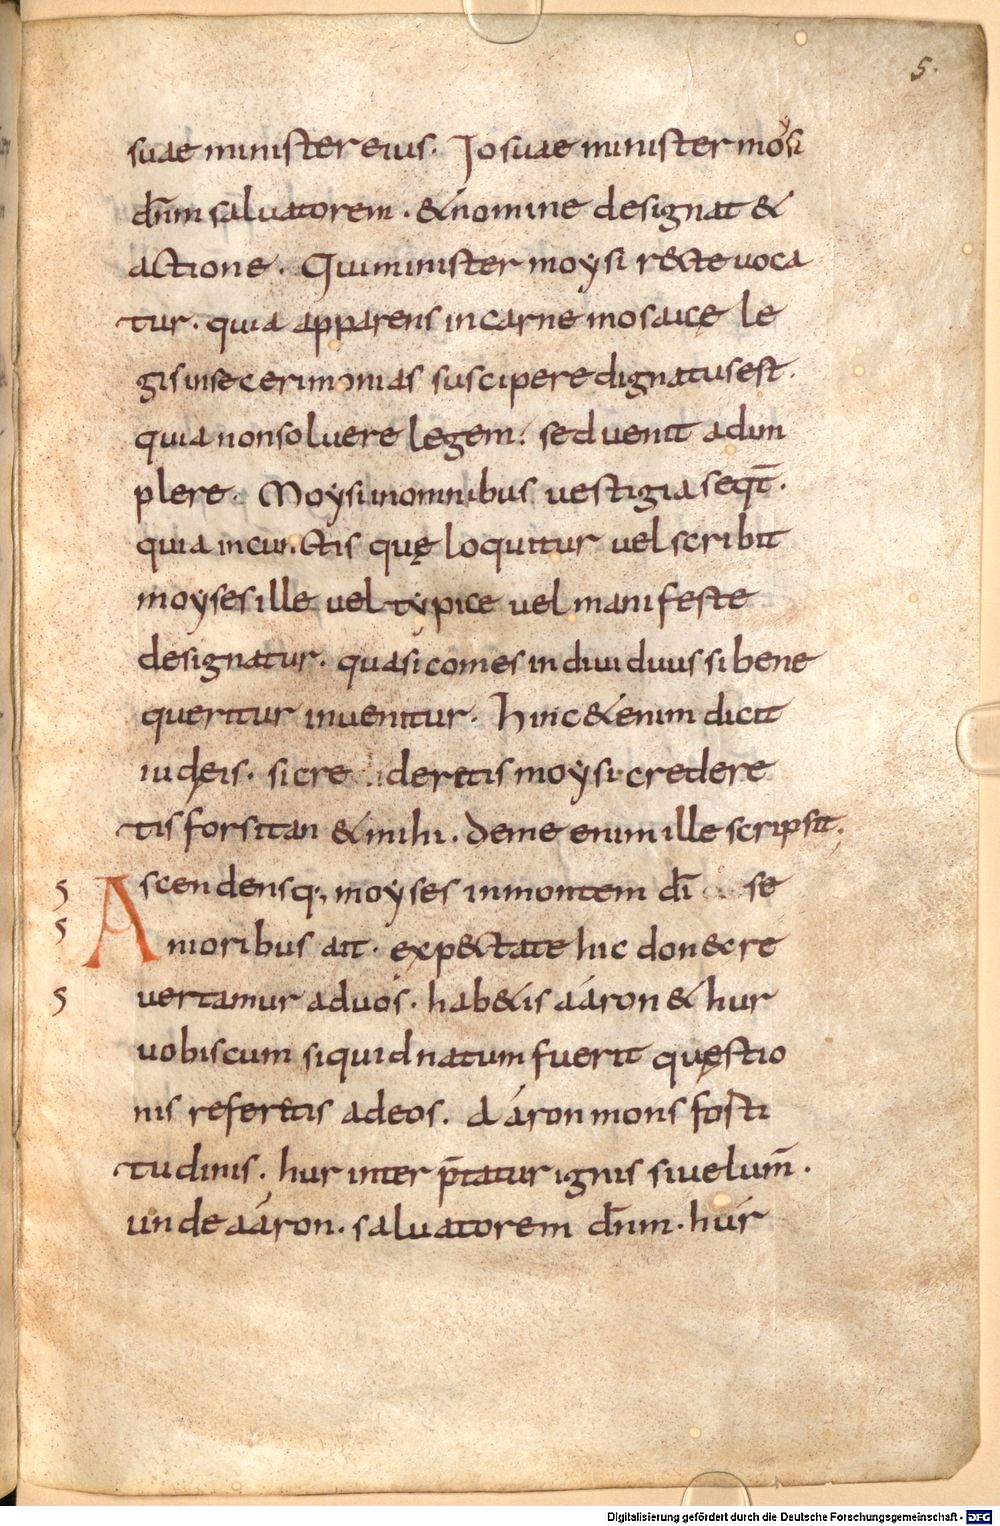 5.
suae minister eius. Iosuae minister moysi
dn̄m saluatorem. & nomine designat &
actione. Qui minister moysi recte uoca
tur. quia apparens in carne mosaicę le
gis in se cerimonias suscipere dignatus est.
quia non soluere legem. sed uenit adim
plere. Moysi in omnibus uestigia seqt̄.
quia in cunctis quę loquitur uel scribit
moyses ille uel typice uel manifeste
designatur. quasi comes indiuiduus si bene
queritur inuenitur. Hinc & enim dicit
iudęis. si cre deretis moysi credere
tis forsitan & mihi. de me enim ille scripsit;
Ascendensq; moyses in montem dī se
nioribus ait. expectate hic donec re
uertamur ad uos. habetis aáron & hur
uobiscum si quid natum fuerit quęstio
nis refertis ad eos. Aáron mons forti
tudinis. hur inter p̄tatur ignis siue lum̄.
unde aáron. saluatorem dn̄m. hur
Digitalisierung gefördert durch die Deutsche Forschungsgemeinschaft - DFG